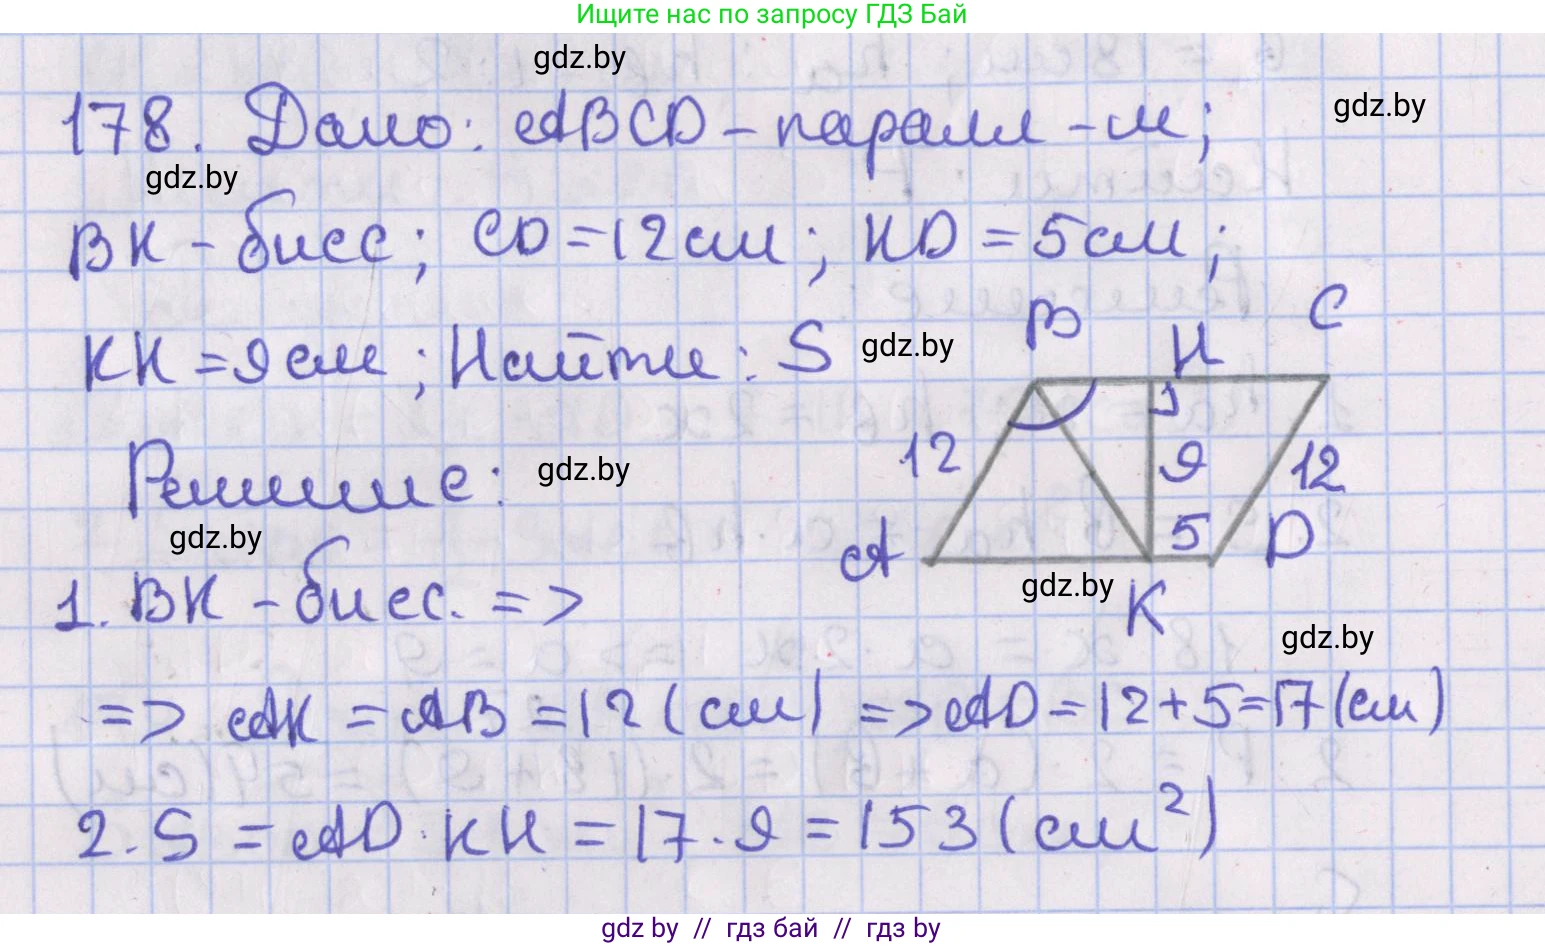 Ищите нас по запросу ГДЗ Бай
gdz.by
178. Дано: ABCD - паралл - м;
gdz.by
gdz.by
BK - бисс; CD = 12 см; KD = 5 см;
KH = 9 см; Найти: S
gdz.by
B H C
12 9 12
5
A K D
gdz.by
Решение:
gdz.by
gdz.by
1. BK - бисс. =>
gdz.by
=> AK = AB = 12 (см) => AD = 12 + 5 = 17 (см)
2. S = AD · KH = 17 · 9 = 153 (см²)
gdz.by // гдз бай // гдз by